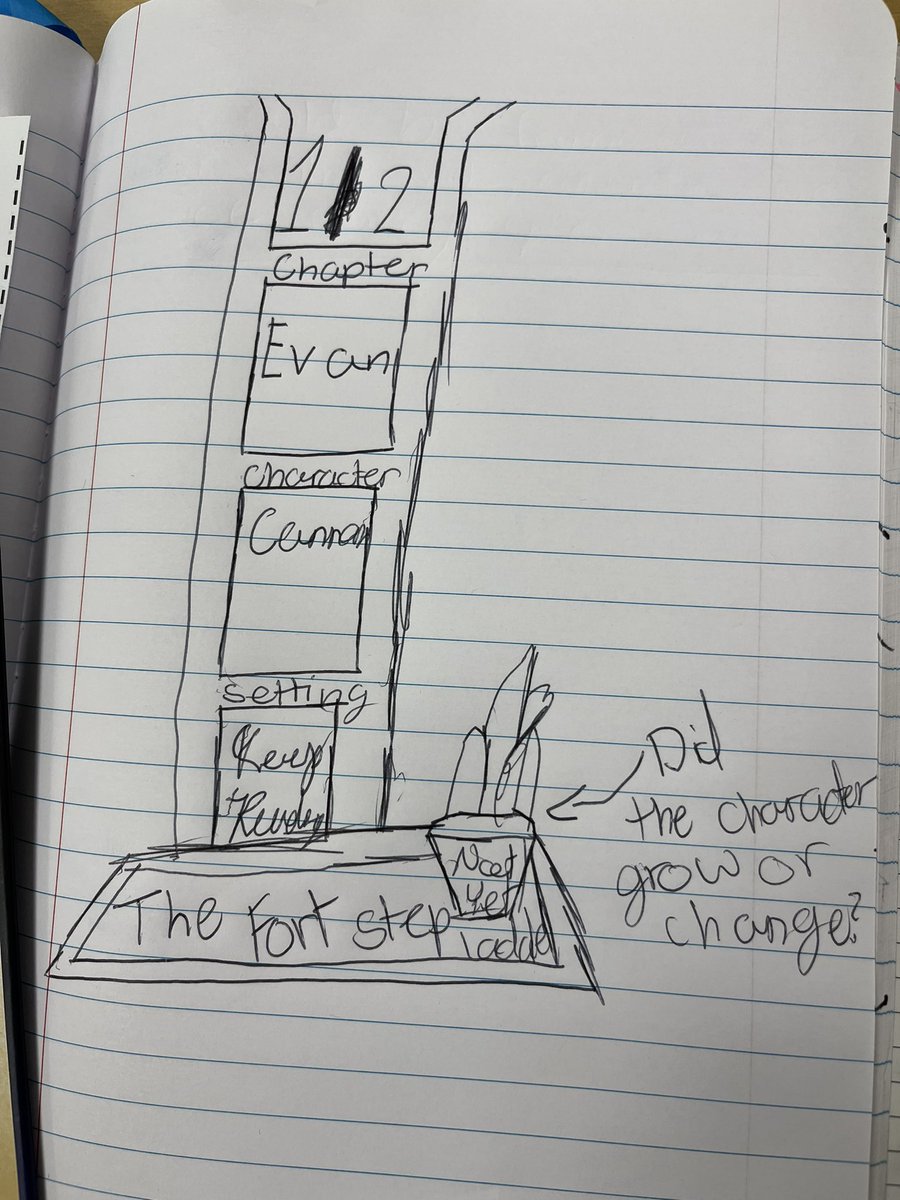 1 2
Chapter
Evan
character
setting
Keep
The Fort step ladder
Did
the character
grow or
change?